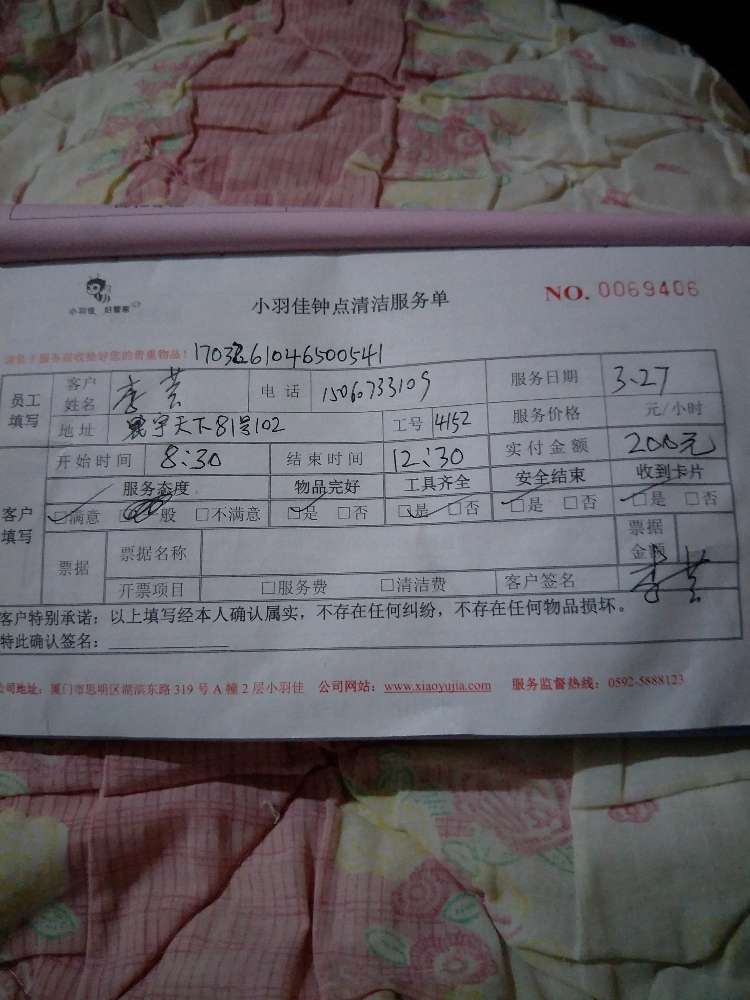 小羽佳 好管家
小羽佳钟点清洁服务单
NO. 0069406
服务验收给好您的贵重物品!
员工填写 客户姓名 李芸 电话 15060733109 服务日期 3.27
地址 寰宇天下81号102 工号 4152 服务价格 元/小时
开始时间 8:30 结束时间 12:30 实付金额 200元
客户填写 服务态度 物品完好 工具齐全 安全结束 收到卡片
□满意 般 □不满意 □是 □否 □是 □否 □是 □否 □是 □否
票据 票据名称 票据金额
开票项目 □服务费 □清洁费 客户签名 李芸
客户特别承诺:以上填写经本人确认属实,不存在任何纠纷,不存在任何物品损坏。
特此确认签名:
公司地址:厦门市思明区湖滨东路 319 号 A 幢 2 层小羽佳 公司网站:www.xiaoyujia.com 服务监督热线:0592-5888123